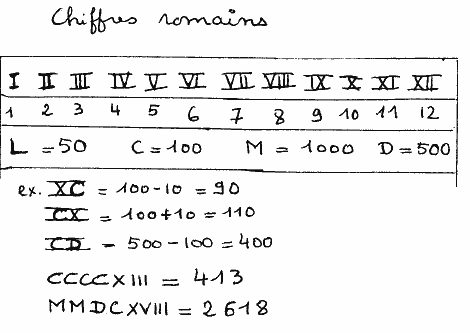 Chiffres romains
I II III IV V VI VII VIII IX X XI XII
1 2 3 4 5 6 7 8 9 10 11 12
L = 50 C = 100 M = 1000 D = 500
ex. XC = 100 - 10 = 90
CX = 100 + 10 = 110
CD = 500 - 100 = 400
CCCCXIII = 413
MMDCXVIII = 2618